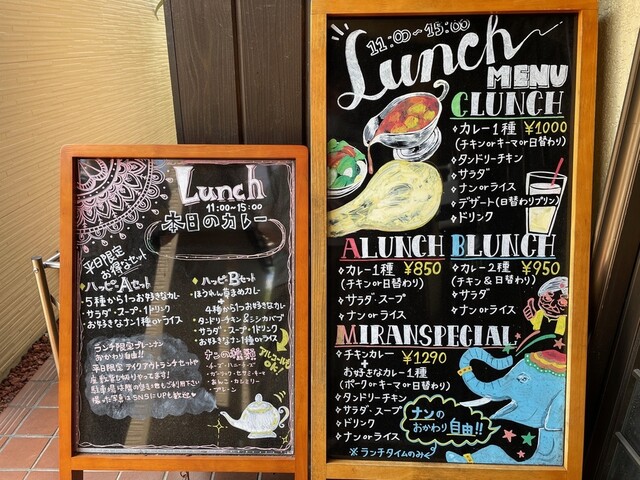 Lunch
11:00~15:00
本日のカレー
平日限定
お得なセット
ハッピーAセット
・5種から1つお好きなカレー
・サラダ・スープ・1ドリンク
・お好きなナン1種orライス
ハッピーBセット
ほうれん草まめカレー
4種から1つお好きなカレー
・タンドリーチキン&シシカバブ
・サラダ・スープ・1ドリンク
・お好きなナン1種orライス
ナンの種類
アルコールも
OK!
・チーズ・ハニーチーズ
・ガーリック・セサミ・キーマ
・あんこ・カシミリー
・プレーン
ランチ限定プレーンナン
おかわり自由!!
平日限定テイクアウトランチセットで
SNSにUPも歓迎♥
11:00~15:00
Lunch
MENU
CLUNCH
◇カレー1種 ¥1000
(チキンorキーマor日替わり)
◇タンドリーチキン
◇サラダ
◇ナンorライス
◇デザート(日替わりプリン)
◇ドリンク
ALUNCH
◇カレー1種 ¥850
(チキンor日替わり)
◇サラダ・スープ
◇ナンorライス
BLUNCH
◇カレー2種 ¥950
(チキン&日替わり)
◇サラダ
◇ナンorライス
MIRANSPECIAL
◇チキンカレー ¥1290
お好きなカレー1種
(ポークorキーマor日替わり)
◇タンドリーチキン
◇サラダ・スープ
◇ドリンク
◇ナンorライス
ナンの
おかわり自由!!
※ランチタイムのみ